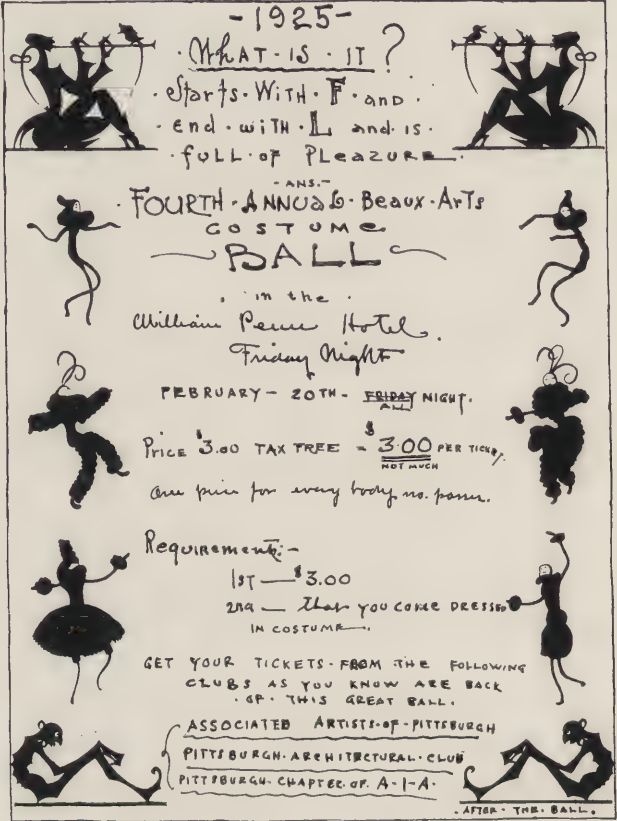 -1925-
·What·is·it?
·Starts·With·F·and·
·end·with·L and·is·
·full·of·Pleazure·
-ANS.-
·Fourth·Annual·Beaux·Arts
COSTUME
BALL
·in the·
William Penn Hotel.
Friday Night
FEBRUARY- 20TH- FRIDAY NIGHT.
ALL
Price $3.00 TAX FREE = $3.00 PER TICKET.
NOT MUCH
One price for every body no. passes.
Requirements:-
1ST — $3.00
2nd — that YOU COME DRESSED
IN COSTUME.
GET YOUR TICKETS·FROM THE FOLLOWING
CLUBS AS YOU KNOW ARE BACK
·OF·THIS GREAT BALL.
ASSOCIATED ARTISTS·OF·PITTSBURGH
PITTSBURGH·ARCHITECTURAL·CLUB
PITTSBURGH·CHAPTER·OF·A·I·A·
·AFTER·THE·BALL.